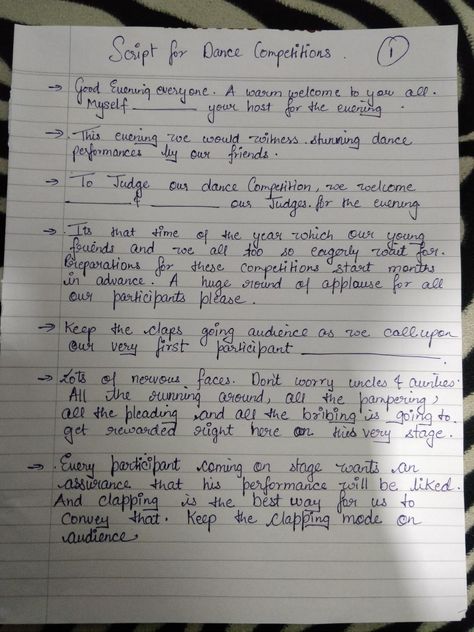 Script for Dance Competitions. 1
→ Good Evening everyone. A warm welcome to you all.
Myself ______ your host for the evening.
→ This evening we would witness stunning dance
performances by our friends.
→ To Judge our dance Competition, we welcome
______ & ______ our Judges for the evening
→ Its that time of the year which our young
friends and we all too so eagerly wait for.
Preparations for these competitions start months
in advance. A huge round of applause for all
our participants please.
→ Keep the claps going audience as we call upon
our very first participant ______.
→ Lots of nervous faces. Don't worry uncles & aunties.
All the running around, all the pampering,
all the pleading and all the bribing is going to
get rewarded right here on this very stage.
→ Every participant coming on stage wants an
assurance that his performance will be liked.
And clapping is the best way for us to
convey that. Keep the clapping mode on
audience